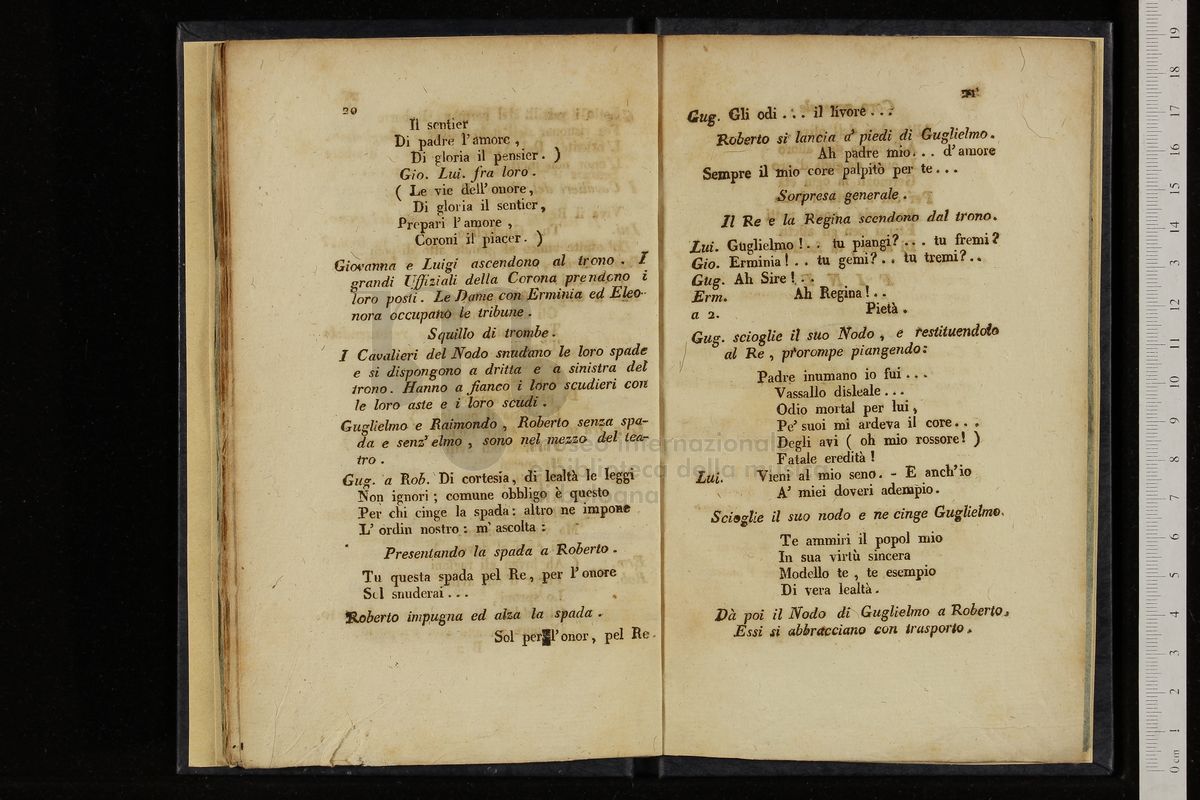 20
Il sentier
Di padre l'amore ,
Di gloria il pensier. )
Gio. Lui. fra loro.
( Le vie dell' onore,
Di gloria il sentier,
Prepari l'amore ,
Coroni il piacer. )
Giovanna e Luigi ascendono al trono . I
grandi Uffiziali della Corona prendono i
loro posti. Le Dame con Erminia ed Eleo-
nora occupano le tribune .
Squillo di trombe.
I Cavalieri del Nodo snudano le loro spade
e si dispongono a dritta e a sinistra del
trono. Hanno a fianco i loro scudieri con
le loro aste e i loro scudi .
Guglielmo e Raimondo , Roberto senza spa-
da e senz' elmo , sono nel mezzo del tea-
tro .
Gug. a Rob. Di cortesia, di lealtà le leggi
Non ignori ; comune obbligo è questo
Per chi cinge la spada: altro ne impone
L' ordin nostro : m' ascolta :
Presentando la spada a Roberto .
Tu questa spada pel Re, per l'onore
Sol snuderai...
Roberto impugna ed alza la spada .
Sol per l'onor, pel Re.
21
Gug. Gli odi ... il livore...
Roberto si lancia a' piedi di Guglielmo.
Ah padre mio... d'amore
Sempre il mio core palpitò per te...
Sorpresa generale .
Il Re e la Regina scendono dal trono.
Lui. Guglielmo !.. tu piangi?... tu fremi?
Gio. Erminia! .. tu gemi?.. tu tremi?..
Gug. Ah Sire!..
Erm. Ah Regina!..
a 2. Pietà .
Gug. scioglie il suo Nodo , e restituendolo
al Re , prorompe piangendo:
Padre inumano io fui...
Vassallo disleale...
Odio mortal per lui,
Pe' suoi mi ardeva il core...
Degli avi ( oh mio rossore! )
Fatale eredità !
Lui. Vieni al mio seno. - E anch'io
A' miei doveri adempio.
Scioglie il suo nodo e ne cinge Guglielmo.
Te ammiri il popol mio
In sua virtù sincera
Modello te , te esempio
Di vera lealtà.
Dà poi il Nodo di Guglielmo a Roberto,
Essi si abbracciano con trasporto.
museo internazionale
e biblioteca della musica
di bologna
0 cm 1 2 3 4 5 6 7 8 9 10 11 12 13 14 15 16 17 18 19